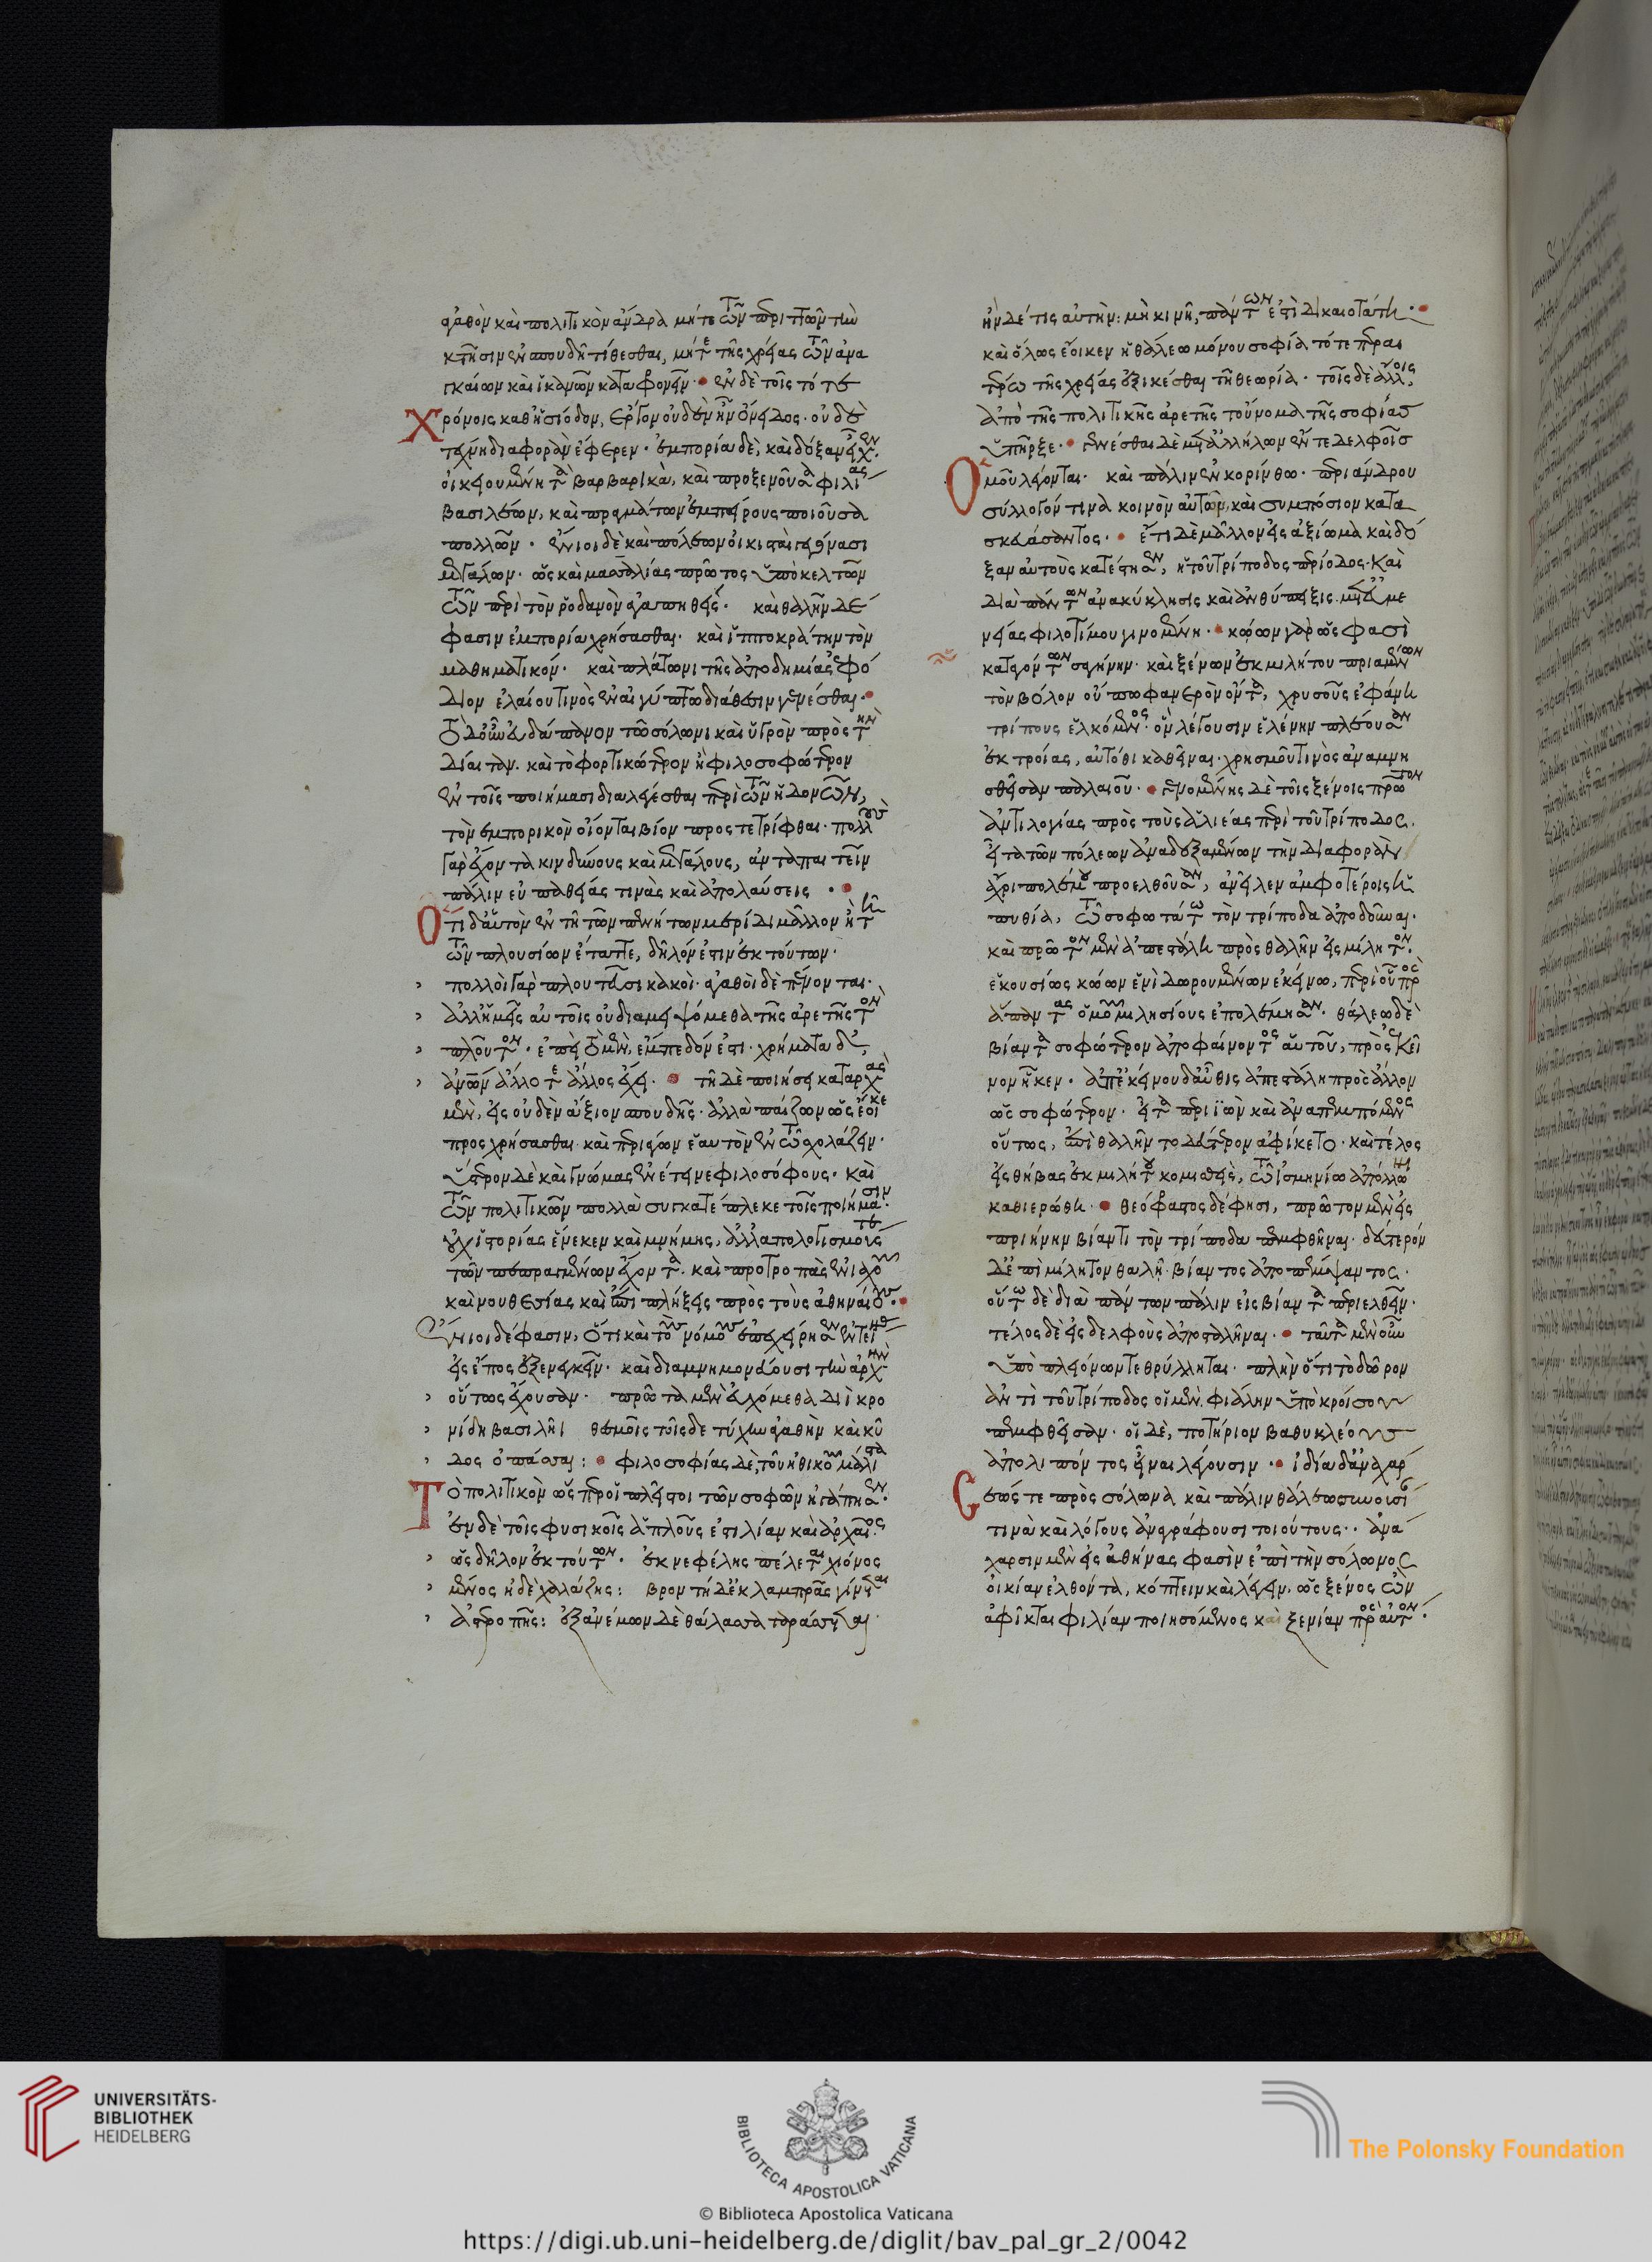 γαθὸν καὶ πολιτικὸν ἄνδρα μήτε τῶν περιττῶν τὴν
κτῆσιν ἐν σπουδῆ τίθεσθαι, μήτε τῆς χρείας τῶν ἀνα
γκαίων καὶ ἱκανῶν καταφρονεῖν· ἐν δὲ τοῖς τότε
χρόνοις καθ' ἡσίοδον, ἔργον οὐδὲν ἦν ὄνειδος· οὐδὲ
τέχνη διαφορὰν ἔφερεν· ἐμπορία δὲ, καὶ δόξαν εἶχεν·
οἰκειουμένη τὰ βαρβαρικὰ, καὶ προξενοῦσα φιλίας
βασιλέων, καὶ πραγμάτων ἐμπείρους ποιοῦσα
πολλῶν· ἔνιοι δὲ καὶ πόλεων οἰκισταὶ γεγόνασι
μεγάλων· ὡς καὶ μασσαλίας πρῶτος ὑπὸ κελτῶν
τῶν περὶ τὸν ῥοδανὸν ἀγαπηθείς· καὶ θαλῆν δέ
φασιν ἐμπορία χρήσασθαι· καὶ ἱπποκράτην τὸν
μαθηματικόν· καὶ πλάτωνι τῆς ἀποδημίας ἐφό
διον ἐλαίου τινος ἐν αἰγύπτω διάθεσιν γενέσθαι·
τὸ δ' οὖν εὐδάπανον τῶ σόλωνι καὶ ὑγρὸν πρὸς τὴν
δίαιταν· καὶ τὸ φορτικώτερον ἢ φιλοσοφώτερον
ἐν τοῖς ποιήμασι διαλέγεσθαι περὶ τῶν ἡδονῶν,
τὸν ἐμπορικὸν οἴονται βίον προστετρίφθαι· πολλοὺς
γὰρ ἔχοντα κινδύνους καὶ μεγάλους, ἀνταπαιτεῖν
πάλιν εὐπαθείας τινὰς καὶ ἀπολαύσεις·
Ὅτι δ' αὑτὸν ἐν τῆ τῶν πενήτων μερίδι μᾶλλον ἢ τῆ
τῶν πλουσίων ἔταττε, δῆλόν ἐστιν ἐκ τούτων·
πολλοὶ γὰρ πλουτεῦσι κακοὶ· ἀγαθοὶ δὲ πένονται·
ἀλλ' ἡμεῖς αὐτοῖς οὐ διαμειψόμεθα τῆς ἀρετῆς τὸν
πλοῦτον· ἐπεὶ τὸ μὲν, ἔμπεδόν ἐστι· χρήματα δ',
ἀνθρώπων ἄλλοτε ἄλλος ἔχει· τῆ δὲ ποιήσει καταρχὰς
μὲν, εἰς οὐδὲν ἄξιον σπουδῆς· ἀλλὰ παίζων ὡς ἔοικε
προσχρήσασθαι καὶ περιάγων ἑαυτὸν ἐν τῶ σχολάζειν·
ὕστερον δὲ καὶ γνώμας ἐνέτεινε φιλοσόφους· καὶ
τῶν πολιτικῶν πολλὰ συγκατέπλεκε τοῖς ποιήμασιν·
οὐχ ἱστορίας ἕνεκεν καὶ μνήμης, ἀλλ' ἀπολογισμούς τε
τῶν πεπραγμένων ἔχοντα· καὶ προτροπὰς ἐνιαχοῦ
καὶ νουθεσίας καὶ ἐπιπλήξεις πρὸς τοὺς ἀθηναίους·
Ἔνιοι δέ φασιν, ὅτι καὶ τοὺς νόμους ἐπεχείρησεν ἐντείνας
εἰς ἔπος ἐξενεγκεῖν· καὶ διαμνημονεύουσι τὴν ἀρχὴν
οὕτως ἔχουσαν· πρῶτα μὲν εὐχόμεθα διὶ κρο
νίδη βασιλῆι θεσμοῖς τοῖσδε τύχην ἀγαθὴν καὶ κῦ
δος ὀπάσσαι: φιλοσοφίας δὲ, τοῦ ἠθικοῦ μάλιστα
Τὸ πολιτικὸν ὥσπερ οἱ πλεῖστοι τῶν σοφῶν ἠγάπησεν·
ἐν δὲ τοῖς φυσικοῖς ἁπλοῦς ἐστι λίαν καὶ ἀρχαῖος·
ὡς δῆλον ἐκ τούτων· ἐκ νεφέλης πέλεται χιόνος
μένος ἠδὲ χαλάζης: βροντὴ δ' ἐκ λαμπρᾶς γίνεται
ἀστροπῆς: ἐξ ἀνέμων δὲ θάλασσα ταράσσεται·
ἤν δέ τις αὐτὴν: μὴ κινῆ, πάντων ἐστὶ δικαιοτάτη·
καὶ ὅλως ἔοικεν ἡ θάλεω μόνου σοφία τότε περαι
τέρω τῆς χρείας ἐξικέσθαι τῆ θεωρία· τοῖς δὲ ἄλλοις,
ἀπὸ τῆς πολιτικῆς ἀρετῆς τοὔνομα τῆς σοφίας
ὑπῆρξε· γενέσθαι δὲ μετ' ἀλλήλων ἔν τε δελφοῖς
Ὁμοῦ λέγονται· καὶ πάλιν ἐν κορίνθω· περιάνδρου
σύλλογόν τινα κοινὸν αὐτῶν, καὶ συμπόσιον κατα
σκευάσαντος· ἔτι δὲ μᾶλλον εἰς ἀξίωμα καὶ δό
ξαν αὐτοὺς κατέστησεν, ἡ τοῦ τρίποδος περίοδος· καὶ
διὰ πάντων ἀνακύκλησις καὶ ἀνθύπειξις μετ' εὐμε
νείας φιλοτίμου γινομένη· κώων γὰρ ὥς φασὶ
καταγόντων σαγήνην· καὶ ξένων ἐκ μιλήτου πριαμένων
τὸν βόλον οὔπω φανερὸν ὄντα, χρυσοῦς ἐφάνη
τρίπους ἑλκόμενος· ὃν λέγουσιν ἑλένην πλέουσαν
ἐκ τροίας, αὐτόθι καθεῖναι· χρησμοῦ τινὸς ἀναμνη
σθεῖσαν παλαιοῦ· γενομένης δὲ τοῖς ξένοις πρῶτον
ἀντιλογίας πρὸς τοὺς ἁλιέας περὶ τοῦ τρίποδος·
εἶτα τῶν πόλεων ἀναδεξαμένων τὴν διαφορὰν
ἄχρι πολέμου προελθοῦσαν, ἀνεῖλεν ἀμφοτέροις ἡ
πυθία, τῶ σοφωτάτω τὸν τρίποδα ἀποδοῦναι·
καὶ πρῶτον μὲν ἀπεστάλη πρὸς θαλῆν εἰς μίλητον·
ἑκουσίως κώων ἑνὶ δωρουμένων ἐκείνω, περὶ οὗ πρὸς
ἅπαντας ὁμοῦ μιλησίους ἐπολέμησαν· θάλεω δὲ
βίαντα σοφώτερον ἀποφαίνοντος αὑτοῦ, πρὸς ἐκεῖ
νον ἧκεν· ἀπ' ἐκείνου δ' αὖθις ἀπεστάλη πρὸς ἄλλον
ὡς σοφώτερον· εἶτα περιϊὼν καὶ ἀναπεμπόμενος
οὕτως, ἐπὶ θαλῆν τὸ δεύτερον ἀφίκετο· καὶ τέλος
εἰς θήβας ἐκ μιλήτου κομισθεὶς, τῶ ἰσμηνίω ἀπόλλωνι
καθιερώθη· θεόφραστος δέ φησι, πρῶτον μὲν εἰς
πριήνην βίαντι τὸν τρίποδα πεμφθῆναι· δεύτερον
δ' ἐπὶ μίλητον θαλῆ· βίαντος ἀποπέμψαντος·
οὕτω δὲ διὰ πάντων πάλιν εἰς βίαντα περιελθεῖν·
τέλος δὲ εἰς δελφοὺς ἀποσταλῆναι· ταῦτα μὲν οὖν
ὑπὸ πλειόνων τεθρύλληται· πλὴν ὅτι τὸ δῶρον
ἀντὶ τοῦ τρίποδος οἱ μὲν, φιάλην ὑπὸ κροίσου
πεμφθεῖσαν· οἱ δὲ, ποτήριον βαθυκλέους
ἀπολιπόντος εἶναι λέγουσιν· ἰδία δ' ἀναχάρ
σεώς τε πρὸς σόλωνα καὶ πάλιν θάλεω συνουσί
τινα καὶ λόγους ἀναγράφουσι τοιούτους·· ἀνά
χαρσιν μὲν εἰς ἀθήνας φασὶν ἐπὶ τὴν σόλωνος
οἰκίαν ἐλθόντα, κόπτειν καὶ λέγειν, ὡς ξένος ὢν
ἀφῖκται φιλίαν ποιησόμενος καὶ ξενίαν πρὸς αὐτόν·
UNIVERSITÄTS-
BIBLIOTHEK
HEIDELBERG
BIBLIOTECA APOSTOLICA VATICANA
The Polonsky Foundation
© Biblioteca Apostolica Vaticana
https://digi.ub.uni-heidelberg.de/diglit/bav_pal_gr_2/0042